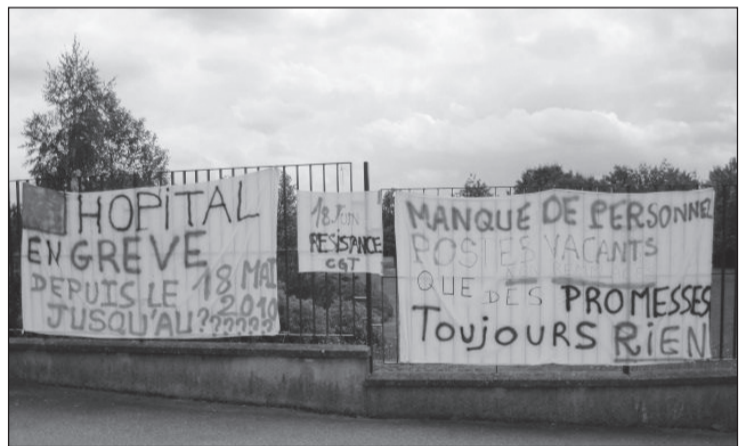 HOPiTAL
EN GREVE
DEPUIS LE 18 MAI
2010
JUSQU'AU??????
18 JUIN
RESISTANCE
CGT
MANQUE DE PERSONNEL
POSTES VACANTS
QUE DES PROMESSES
ToujOURS RiEN